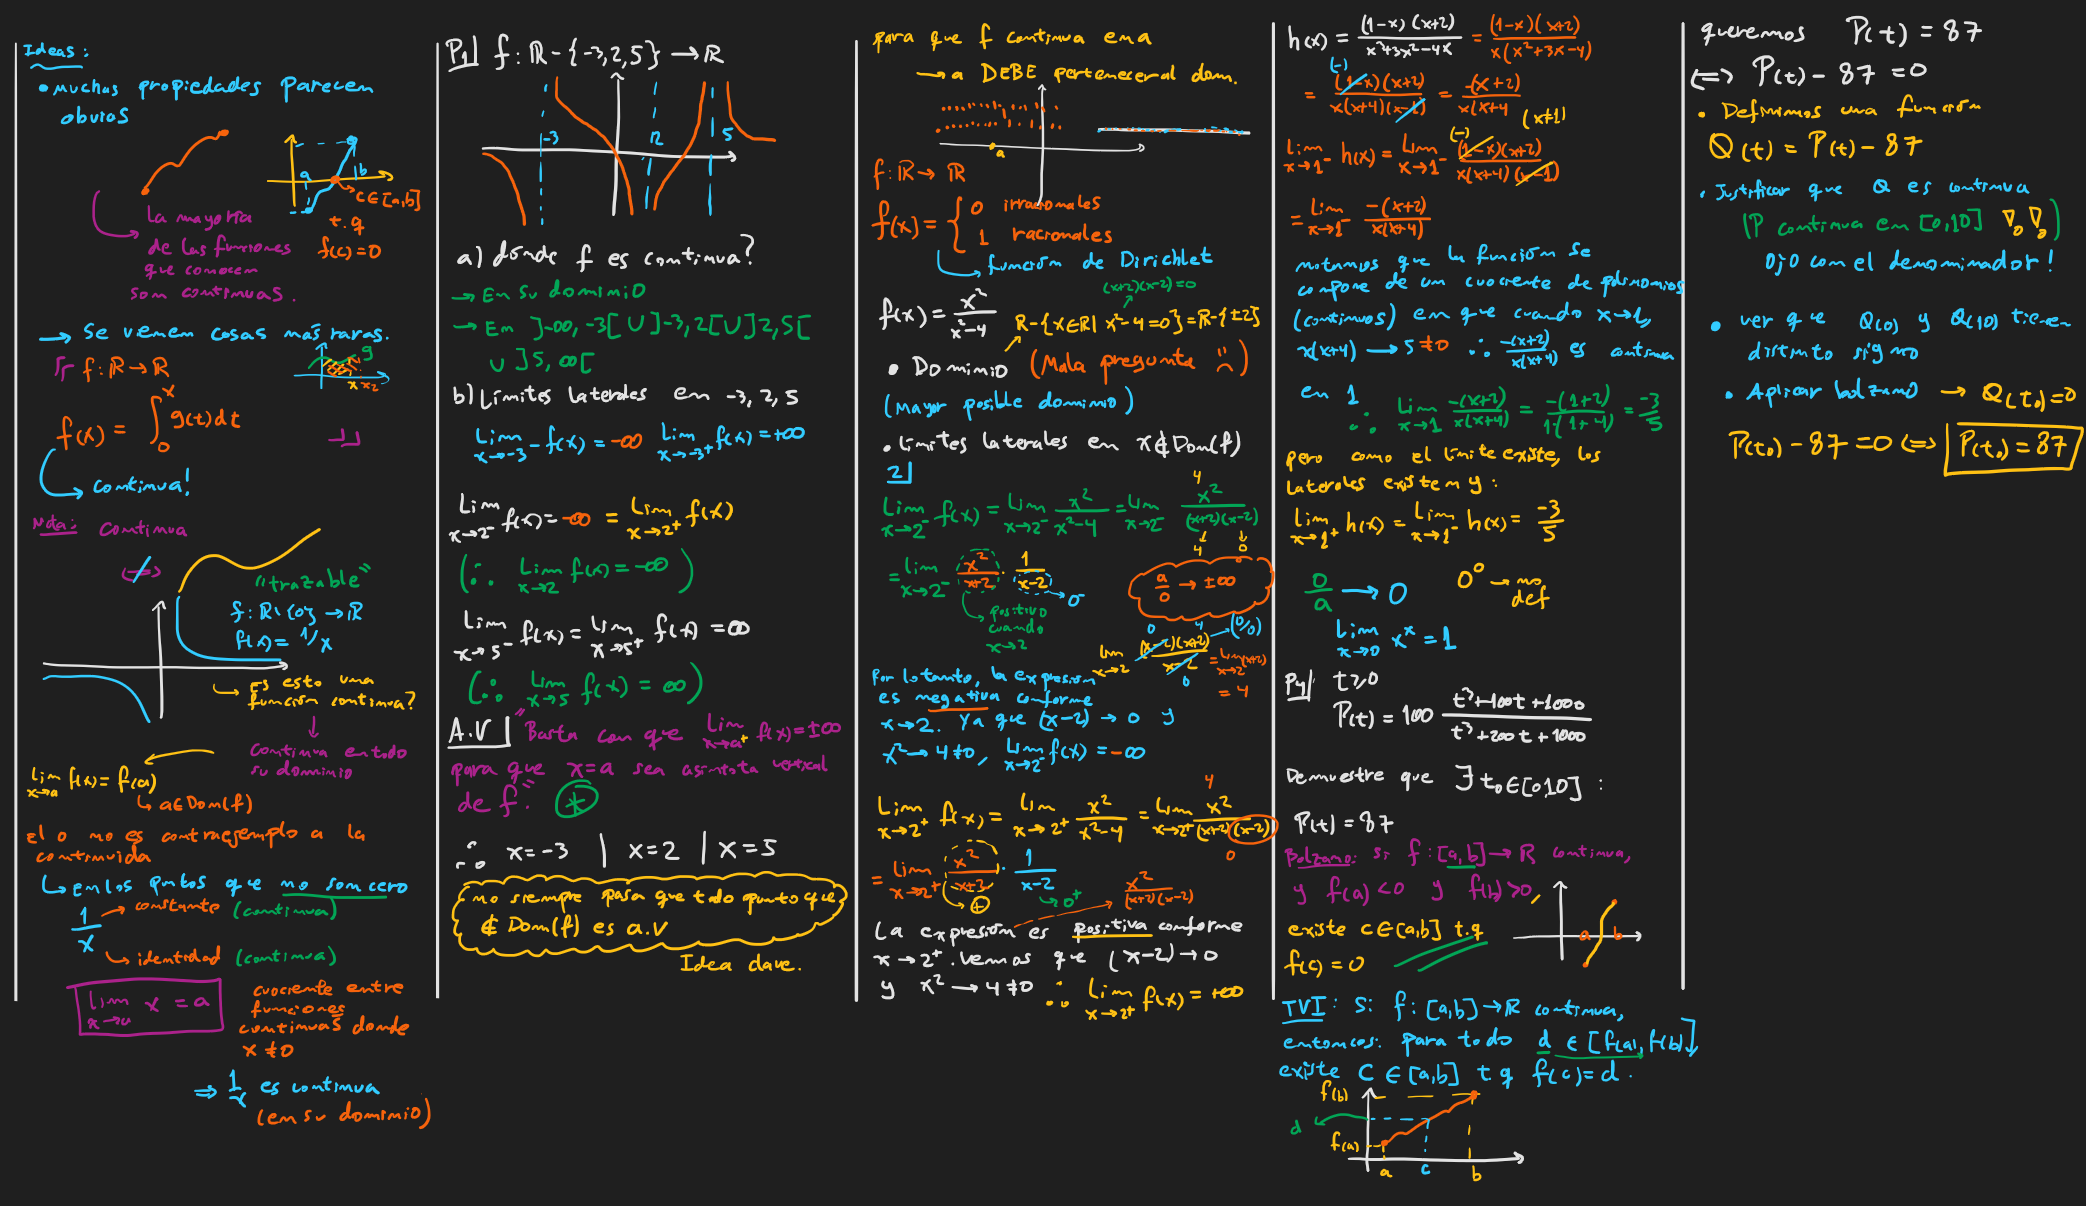 Ideas:
• Muchas propiedades parecen
obvias
a
b
c∈[a,b]
t.q
f(c)=0
La mayoría
de las funciones
que conocen
son continuas.
→ Se vienen cosas más raras.
f: ℝ → ℝ
g
x x₂
f(x) = ∫₀ˣ g(t)dt
↳ continua!
Nota: continua
"trazable"
f: ℝ\{0} → ℝ
f(x) = 1/x
↳ Es esto una
función continua?
↓
continua en todo
su dominio
lim x→a f(x) = f(a)
↳ a∈Dom(f)
El 0 no es contraejemplo a la
continuida
↳ en los puntos que no son cero
1/x → constante (continua)
↳ identidad (continua)
lim x→a x = a
cuociente entre
funciones
continuas donde
x ≠ 0
⇒ 1/x es continua
(en su dominio)
P1| f: ℝ - {-3,2,5} → ℝ
-3
2
5
a) dónde f es continua?
→ En su dominio
→ En ]-∞,-3[ ∪ ]-3,2[ ∪ ]2,5[
∪ ]5,∞[
b) Límites laterales en -3, 2, 5
Lim x→-3⁻ f(x) = -∞ Lim x→-3⁺ f(x) = +∞
Lim x→2⁻ f(x) = -∞ = Lim x→2⁺ f(x)
(∴ Lim x→2 f(x) = -∞)
Lim x→5⁻ f(x) = Lim x→5⁺ f(x) = ∞
(∴ Lim x→5 f(x) = ∞)
A.V| "Basta con que Lim x→a⁺ f(x) = ±∞
para que x=a sea asíntota vertical
de f". (*)
∴ x=-3 | x=2 | x=5
no siempre pasa que todo punto que
∉ Dom(f) es a.v
Idea clave.
para que f continua en a
→ a DEBE pertenecer al dom.
a
f: ℝ → ℝ
f(x) = { 0 irracionales
1 racionales
↳ función de Dirichlet
(x+2)(x-2)=0
f(x) = x²/(x²-4)
ℝ-{x∈ℝ| x²-4=0} = ℝ-{±2}
• Dominio (Mala pregunta :( )
(Mayor posible dominio)
• límites laterales en x∉Dom(f)
2|
Lim x→2⁻ f(x) = Lim x→2⁻ x²/(x²-4) = Lim x→2⁻ x²/((x+2)(x-2))
4
4 0
= Lim x→2⁻ x²/(x+2) · 1/(x-2)
→ 0⁻
a/0 → ±∞
positivo
cuando
x→2
Lim x→2 (x-2)(x+2)/(x-2) → (0/0)
0 4
0
= Lim x→2 (x+2)
= 4
Por lo tanto, la expresión
es negativa conforme
x→2. Ya que (x-2) → 0 y
x² → 4≠0, Lim x→2⁻ f(x) = -∞
4
Lim x→2⁺ f(x) = Lim x→2⁺ x²/(x²-4) = Lim x→2⁺ x²/((x+2)(x-2))
0
= Lim x→2⁺ x²/(x+2) · 1/(x-2)
↳ ⊕
↳ 0⁺
x²/((x+2)(x-2))
La expresión es positiva conforme
x→2⁺. Vemos que (x-2) → 0
y x² → 4≠0 ∴ Lim x→2⁺ f(x) = +∞
h(x) = (1-x)(x+2)/(x³+3x²-4x) = (1-x)(x+2)/(x(x²+3x-4))
(-)
= (1-x)(x+2)/(x(x+4)(x-1)) = -(x+2)/(x(x+4)
(x≠1)
(-)
Lim x→1⁻ h(x) = Lim x→1⁻ (1-x)(x+2)/(x(x+4)(x-1))
= Lim x→1⁻ -(x+2)/(x(x+4))
notamos que la función se
compone de un cuociente de polinomios
(continuos) en que cuando x→1,
x(x+4) → 5≠0 ∴ -(x+2)/(x(x+4)) es continua
en 1
∴ Lim x→1 -(x+2)/(x(x+4)) = -(1+2)/(1·(1+4)) = -3/5
pero como el límite existe, los
laterales existen y:
Lim x→1⁺ h(x) = Lim x→1⁻ h(x) = -3/5
0/a → 0
0⁰ → no
def
Lim x→0 xˣ = 1
P4| t≥0
P(t) = 100 (t³+100t+1000)/(t³+200t+1000)
Demuestre que ∃ t₀∈[0,10]:
P(t) = 87
Bolzano: si f: [a,b] → ℝ continua,
y f(a)<0 y f(b)>0,
existe c∈[a,b] t.q
f(c)=0
a b
TVI: Si f: [a,b] → ℝ continua,
entonces: para todo d ∈ [f(a), f(b)],
existe c∈[a,b] t.q f(c)=d.
f(b)
d
f(a)
a c b
queremos P(t) = 87
⟺ P(t) - 87 = 0
• Definimos una función
Q(t) = P(t) - 87
• Justificar que Q es continua
(P continua en [0,10] )
Ojo con el denominador!
• ver que Q(0) y Q(10) tienen
distinto signo
• Aplicar bolzano → Q(t₀)=0
P(t₀) - 87 = 0 ⟺ P(t₀) = 87